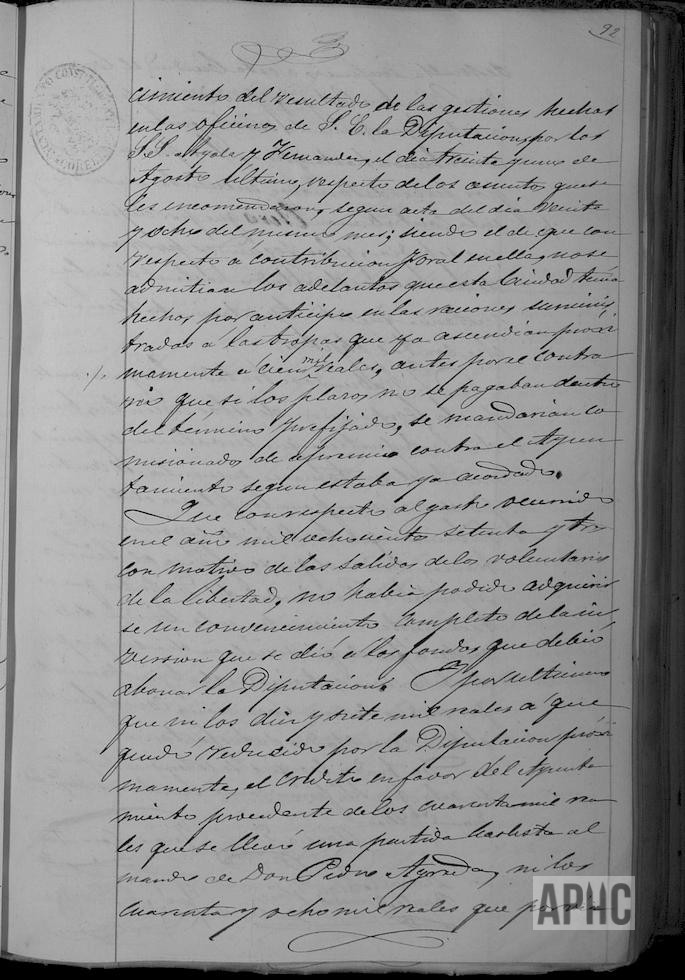 92
cimiento del resultado de las gestiones hechas
en las oficinas de S. E. la Diputacion, por los
S.S. Ayala y Fernandez, el dia treinta y uno de
Agosto ultimo, respecto de los asuntos que se
les encomendaron, segun acta del dia veinte
y ocho del mismo mes; siendo el de que con
respecto a contribucion foral en ella, no se
admitian los adelantos que esta Ciudad tenia
hechos por anticipo en las raciones suminis
tradas a las tropas que ya ascendian proxi
mamente a cien mil reales, antes por el contra
rio que si los plazos no se pagaban dentro
del término prefijado, se mandarian co
misionados de apremio contra el Ayun
tamiento segun estaba ya acordado.
Que con respecto al gasto ocurrido
en el año mil ochocientos setenta y tres
con motivo de las salidas de los voluntarios
de la libertad, no habia podido adquirir
se un convencimiento completo de la in
version que se dió a los fondos que debió
abonar la Diputacion. Y por ultimo
que ni los diez y siete mil reales a que
quedó reducido por la Diputacion proxi
mamente, el credito en favor del Ayunta
miento procedente de los cuarenta mil rea
les que se llevó una partida carlista al
mando de Don Pedro Agreda, ni los
cuarenta y ocho mil reales que por
APHC